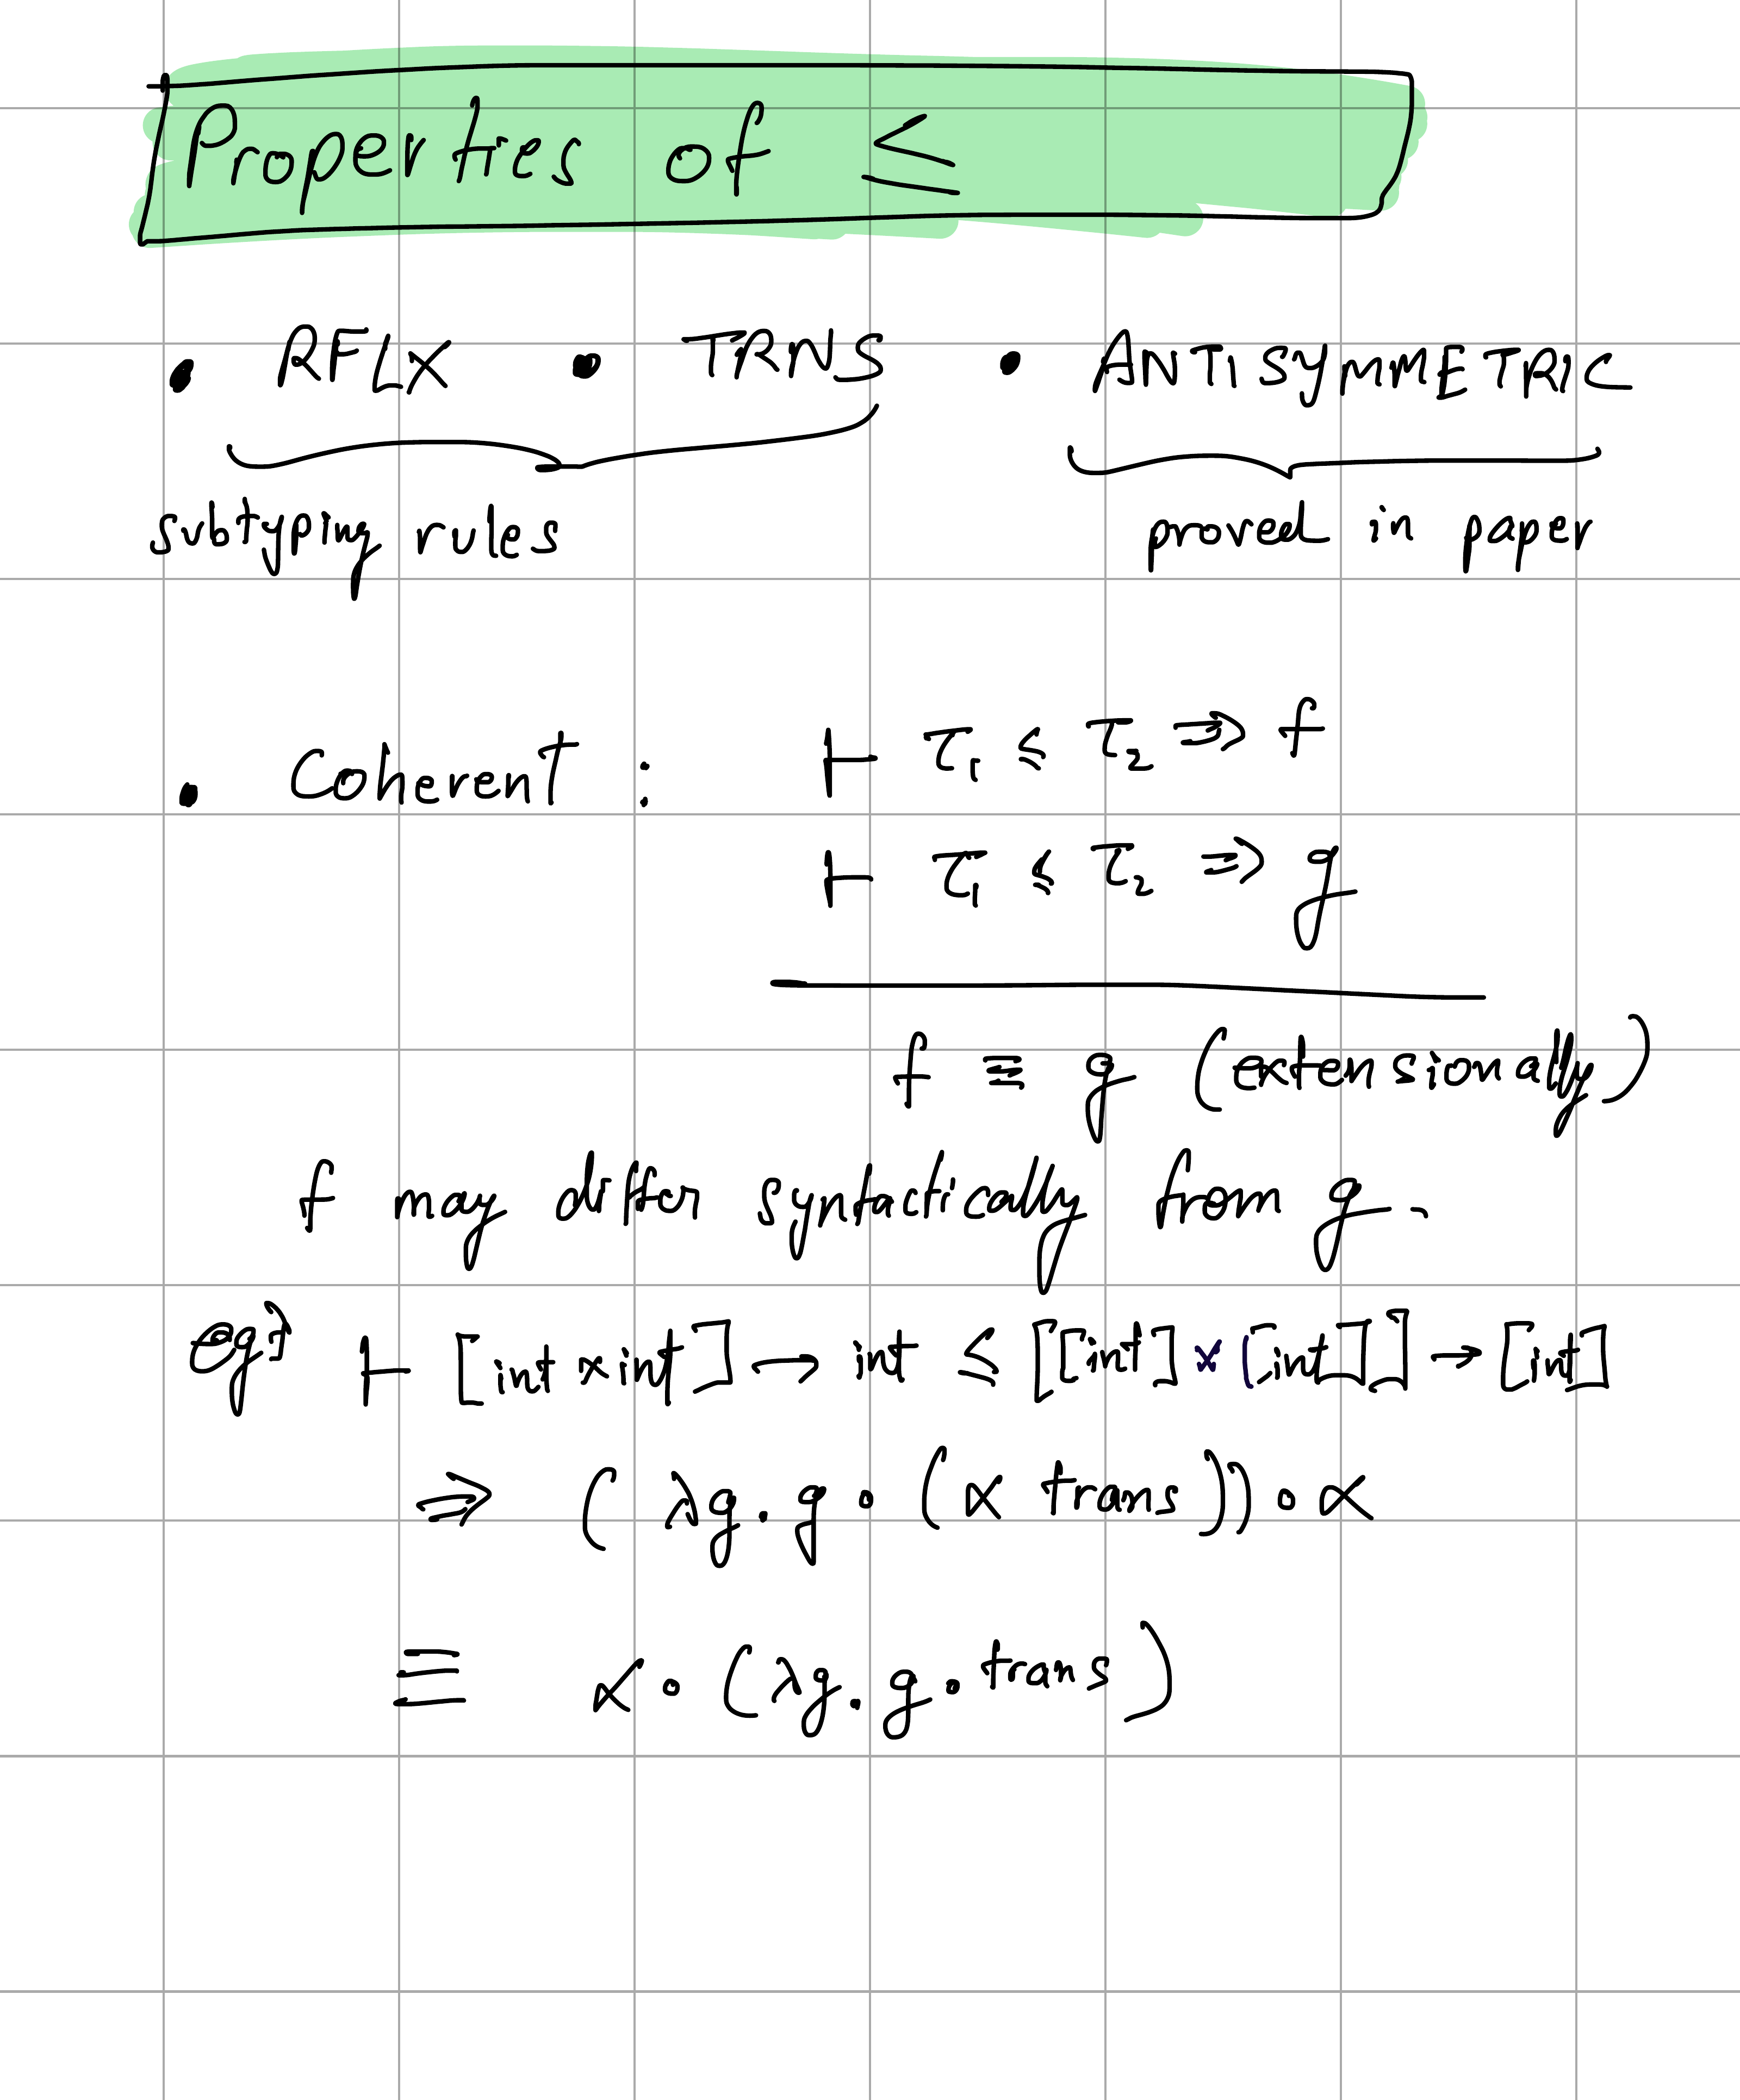 Properties of ≤
• RFLX • TRNS • ANTISYMMETRIC
subtyping rules proved in paper
• Coherent : ⊢ τ₁ ≤ τ₂ ⇒ f
⊢ τ₁ ≤ τ₂ ⇒ g
f ≡ g (extensionally)
f may differ syntactically from g.
eg) ⊢ [int × int] → int ≤ [[int] × [int]] → [int]
⇒ (λg. g ∘ (∝ trans)) ∘ ∝
≡ ∝ ∘ (λg. g ∘ trans)